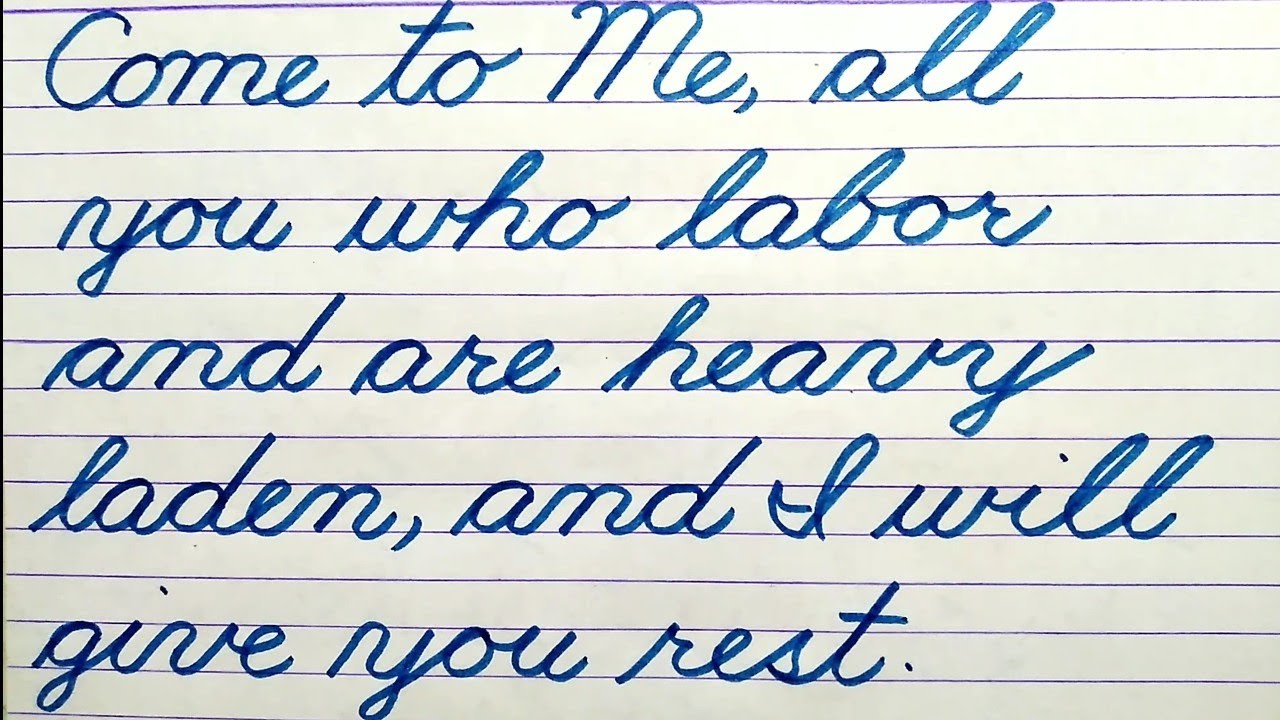 Come to Me, all
you who labor
and are heavy
laden, and I will
give you rest.